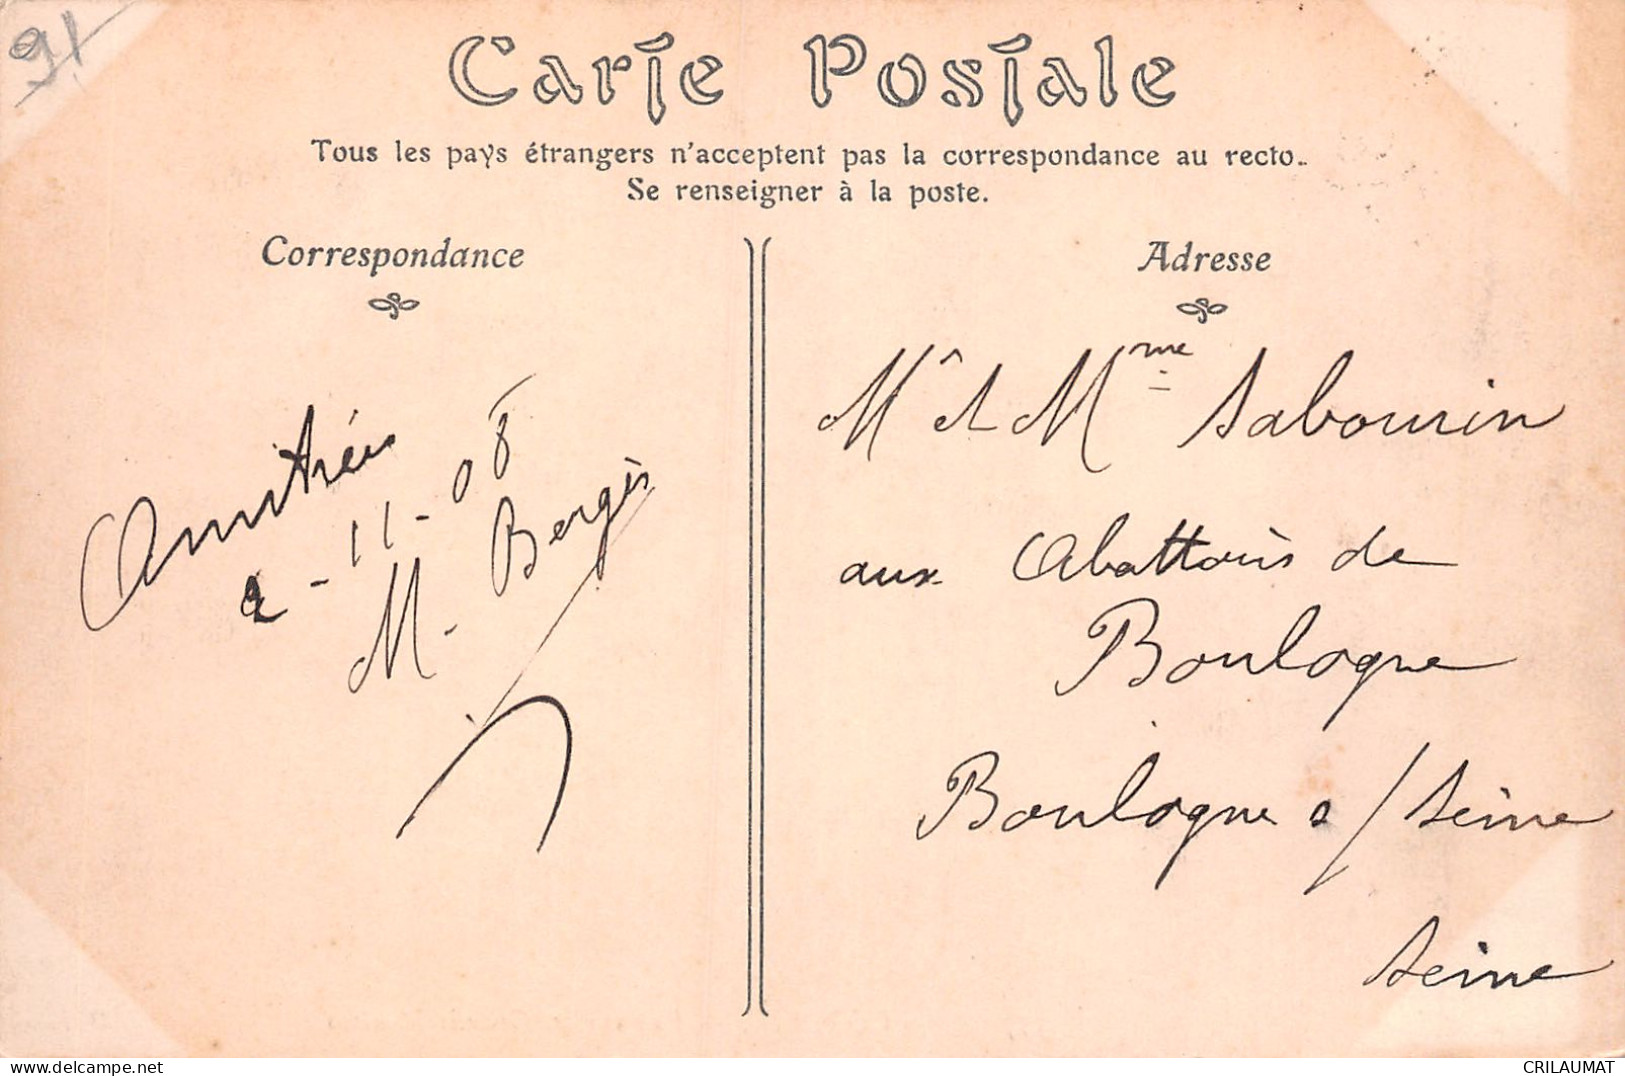 91
Carte Postale
Tous les pays étrangers n'acceptent pas la correspondance au recto..
Se renseigner à la poste.
Correspondance
Amitiés
2-11-08
M. Bergès
Adresse
Mr et Mme Sabourin
aux Abattoirs de
Boulogne
Boulogne s/Seine
Seine
delcampe.net
CRILAUMAT